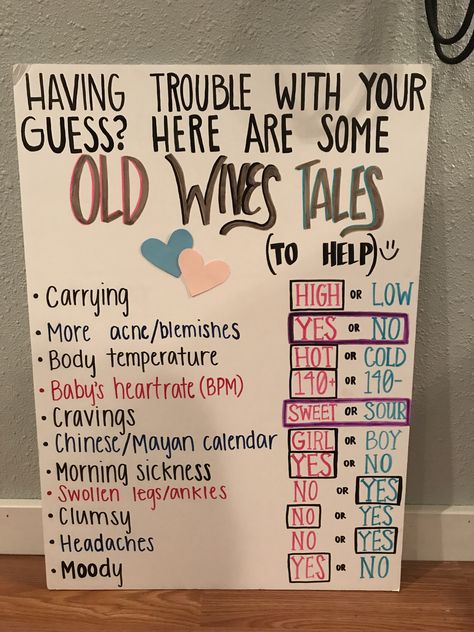 HAVING TROUBLE WITH YOUR
GUESS? HERE ARE SOME
OLD WIVES TALES
(TO HELP)
• Carrying HIGH OR LOW
• More acne/blemishes YES OR NO
• Body temperature HOT OR COLD
• Baby's heartrate (BPM) 140+ OR 140-
• Cravings SWEET OR SOUR
• Chinese/Mayan calendar GIRL OR BOY
• Morning sickness YES OR NO
• Swollen legs/ankles NO OR YES
• Clumsy NO OR YES
• Headaches NO OR YES
• Moody YES OR NO